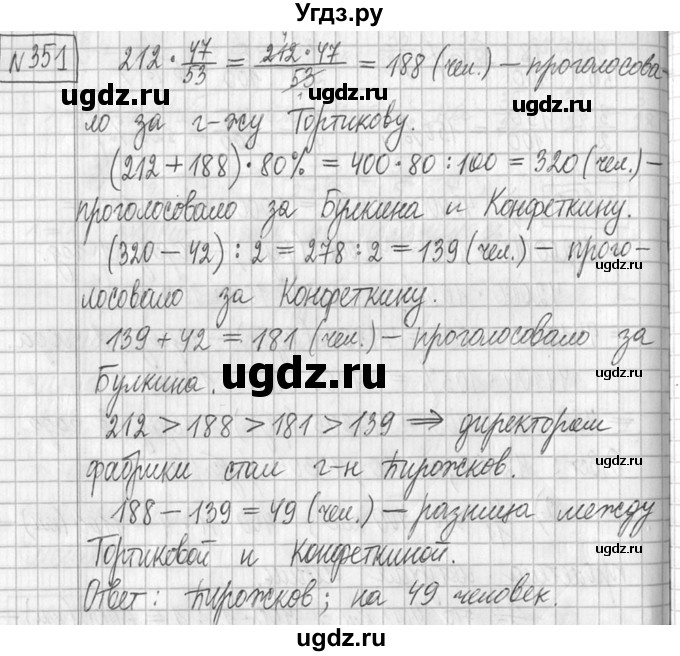 Угдз.ру
№351 212 · 47/53 = 212·47/53 = 188 (чел.) – проголосова-
ugdz.ru ugdz.ru
ло за г-жу Тортикову.
(212+188)·80% = 400·80:100 = 320 (чел.) –
проголосовало за Булкина и Конфеткину.
ugdz.ru ugdz.ru
(320–42):2 = 278:2 = 139 (чел.) – прого-
ugdz.ru
лосовало за Конфеткину.
ugdz.ru
139+42 = 181 (чел.) – проголосовало за
Булкина.
ugdz.ru ugdz.ru
212 > 188 > 181 > 139 ⇒ директором
ugdz.ru
фабрики стал г-н Пирожков.
ugdz.ru
188 – 139 = 49 (чел.) – разница между
Тортиковой и Конфеткиной.
ugdz.ru ugdz.ru
Ответ: Пирожков; на 49 человек.
ugdz.ru